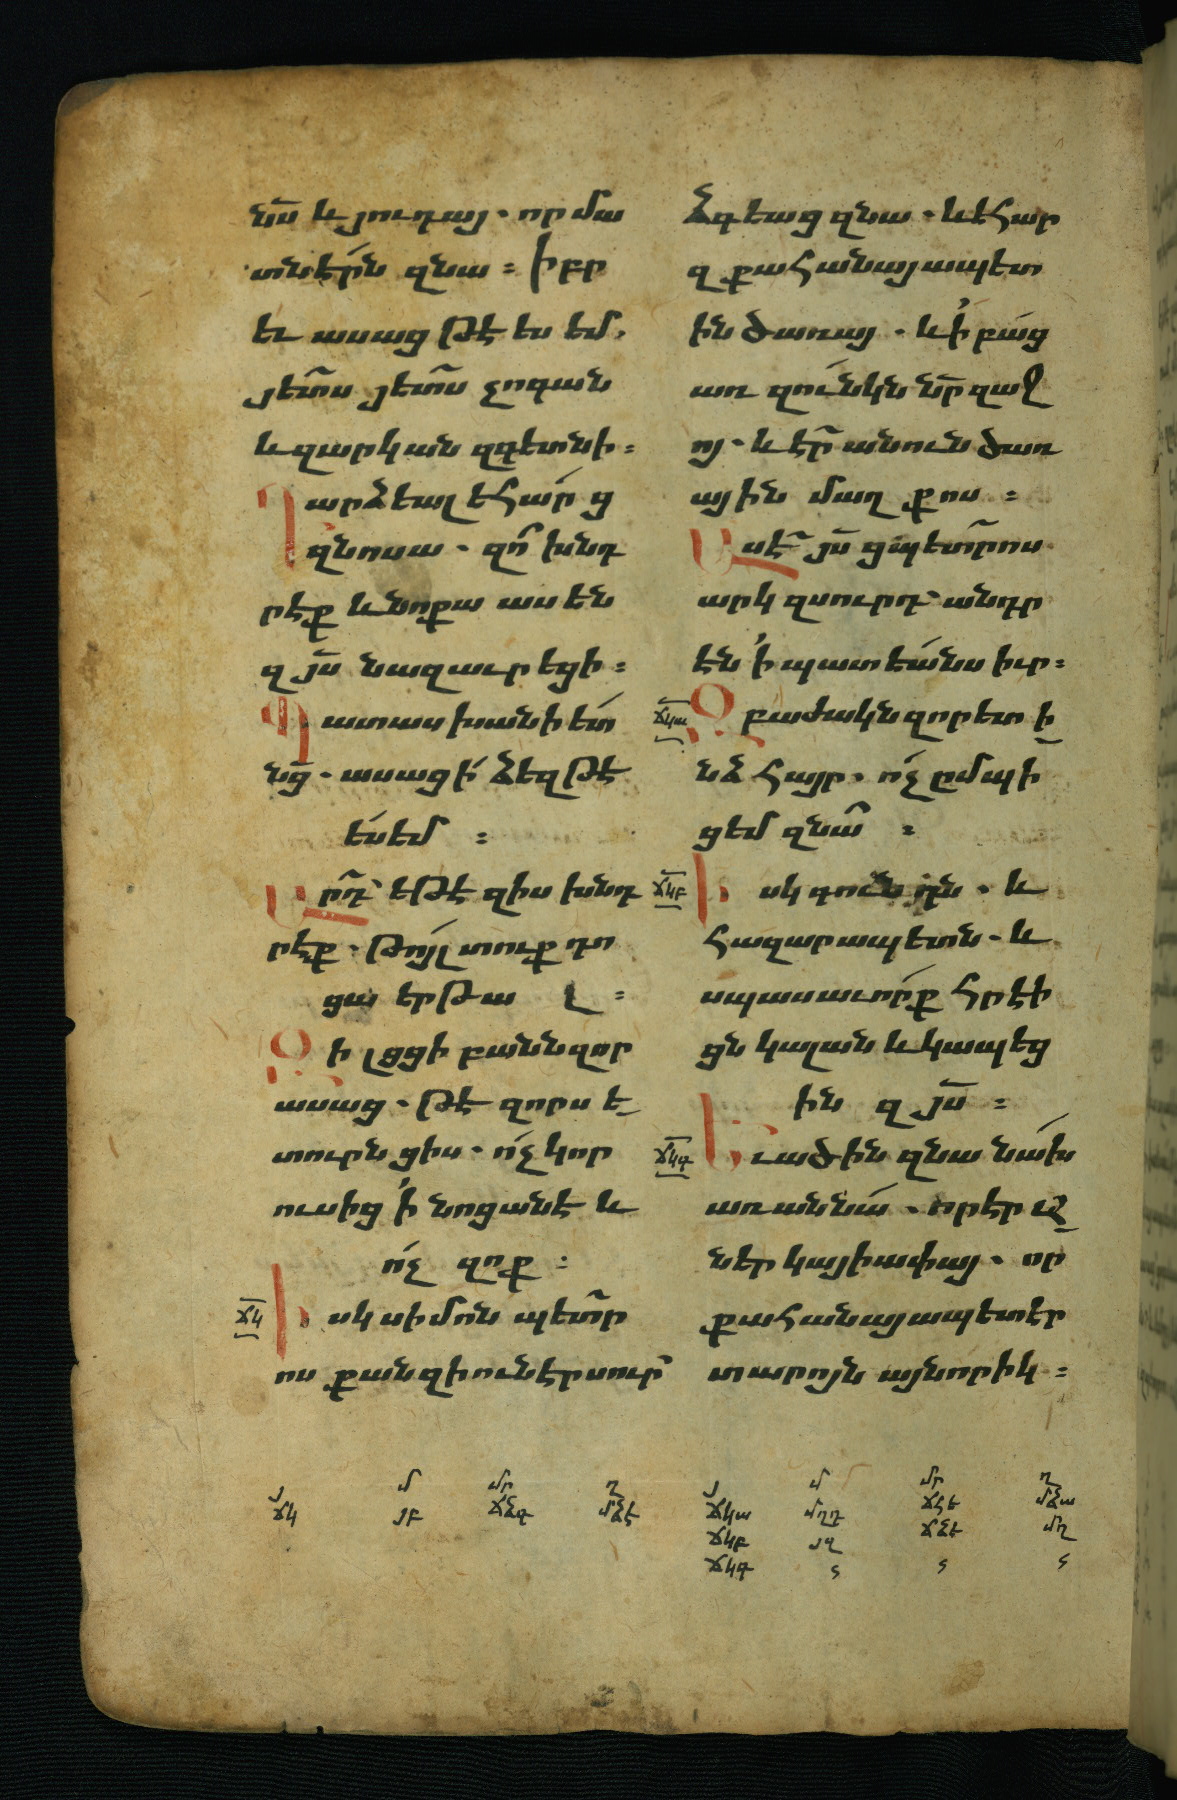 նս և յուդայ. որ մա
տնէրն զնա ։ իբր
եւ ասաց թէ ես եմ.
յետս յետս չոգան
և զարկան զգետնի ։
Դարձեալ եհարց
զնոսա . զո խնդ
րէք և նոքա ասեն
զյս նազաւրեցի ։
Պատասխանի ետ
նց . ասացի ձեզ թէ
ես եմ ։
Արդ եթէ զիս խնդ
րէք . թոյլ տուք դո
ցա երթալ ։
Զի լցցի բանն զոր
ասաց . թէ զորս ե
տուրն ցիս . ոչ կոր
ուսից ի նոցանէ և
ոչ զոք ։
ճկ
Իսկ սիմոն պետր
ոս քանզի ունէր սուր
ձգեաց զնա . և եհար
զքահանայապետ
ին ծառայ . և ի բաց
առ զունկն նր զաջ
ոյ . և էր անուն ծառ
ային մաղքոս ։
Ասէ յս ցպետրոս
արկ զսուրդ անդր
էն ի պատեանս իւր ։
ճկա
Զբաժակն զոր ետ ի
նձ հայր . ոչ ըմպի
ցեմ զնա ։
ճկբ
Իսկ գունդն . և
հազարապետն . և
սպասաւորք հրէի
ցն կալան և կապեց
ին զյս ։
ճկգ
Եւ ածին զնա նախ
առ աննա . որ էր ան
ներ կայիափայ . որ
քահանայապետ էր
տարոյն այնորիկ ։
յ մ մր ղ
ճկ յբ ճձգ մձէ
յ մ մր ղ
ճկա մղդ ճհե մձա
ճկբ յզ ճձէ մղ
ճկգ